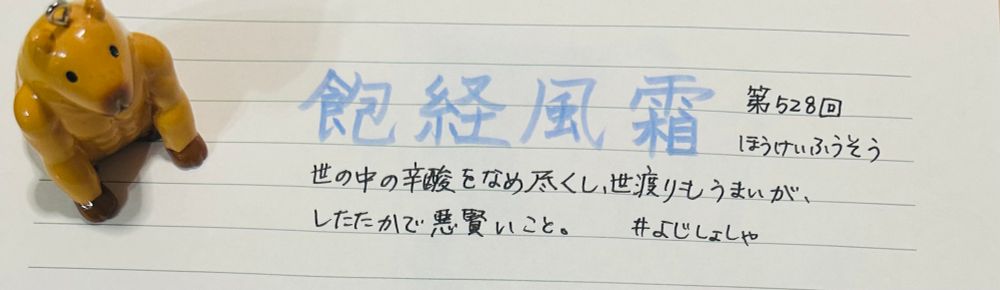 飽経風霜
第528回
ほうけいふうそう
世の中の辛酸をなめ尽くし、世渡りもうまいが、
したたかで悪賢いこと。 #よじしょしゃ